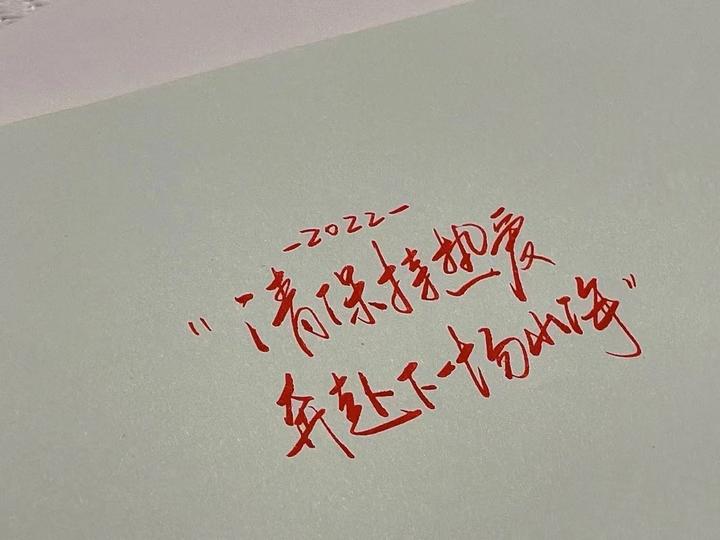 -2022-
"清保持热爱
奔赴下一场山海"